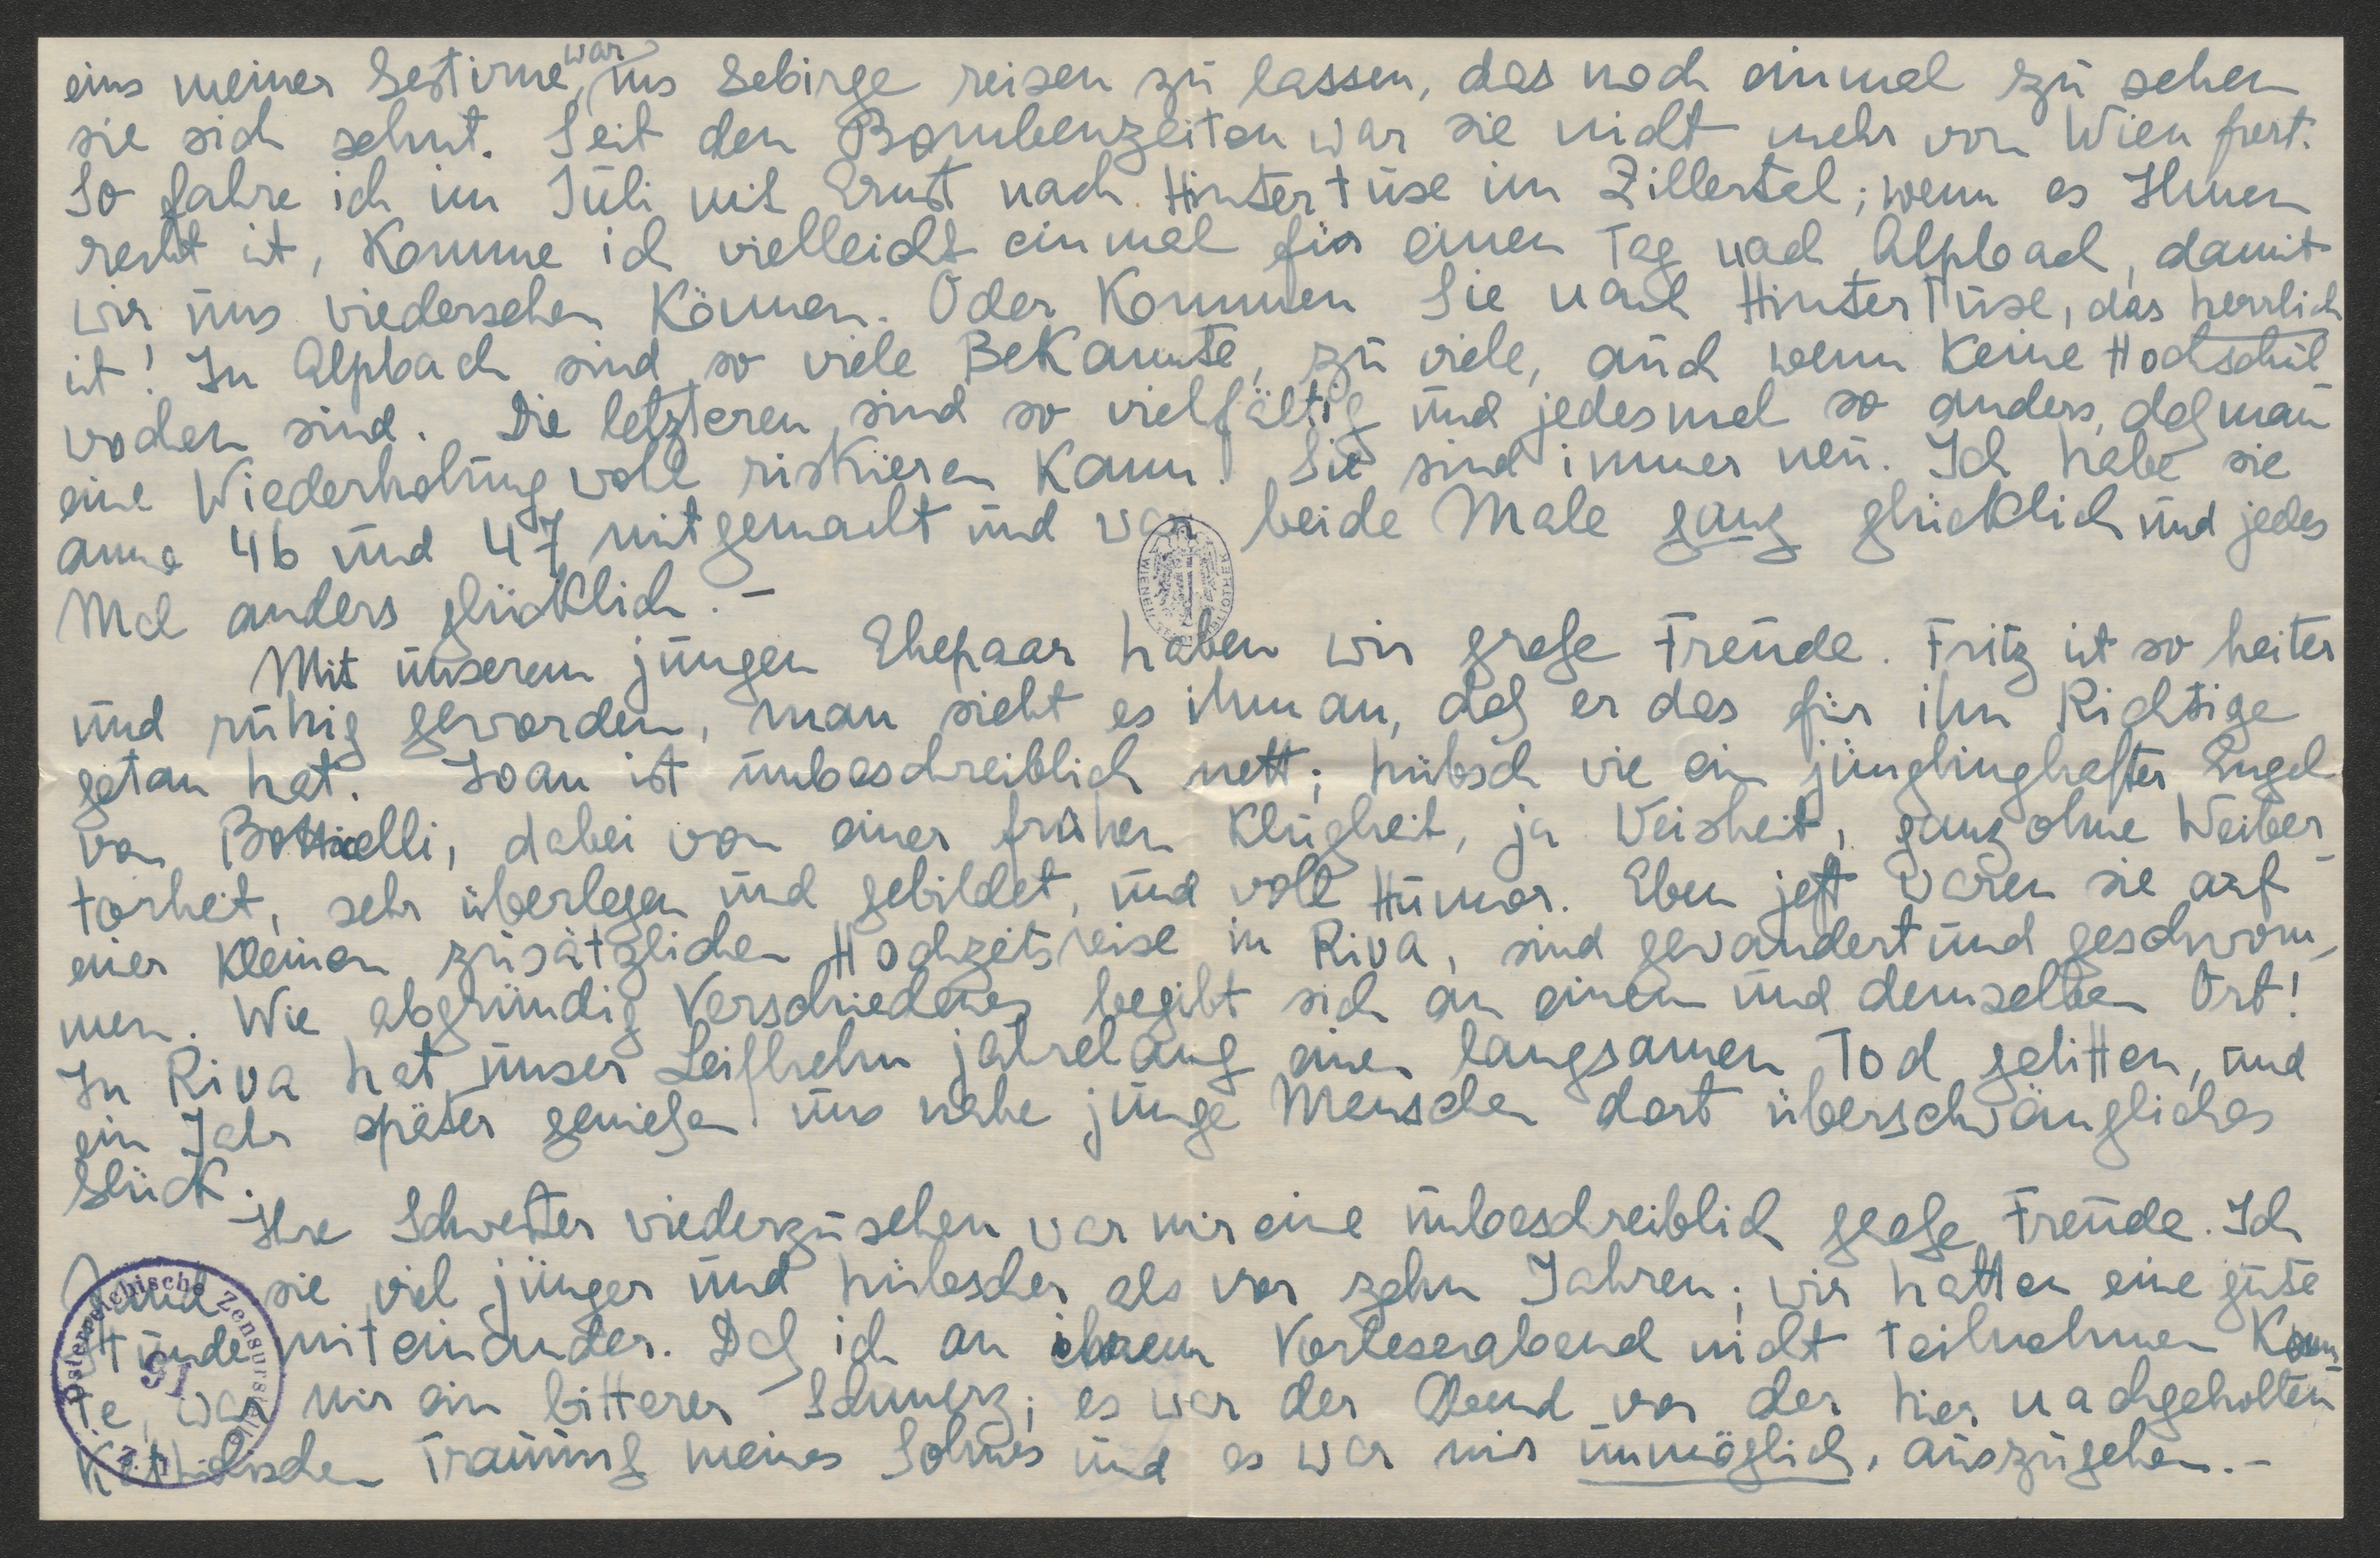 eins meiner Gestirne war, ins Gebirge reisen zu lassen, das noch einmal zu sehen
sie sich sehnt. Seit den Bombenzeiten war sie nicht mehr von Wien fort.
So fahre ich im Juli mit Ernst nach Hintertuxe im Zillertal; wenn es Ihnen
recht ist, komme ich vielleicht einmal für einen Tag nach Alpbach, damit
wir uns wiedersehen können. Oder kommen Sie nach Hintertuxe, das herrlich
ist! In Alpbach sind so viele Bekannte, zu viele, auch wenn keine Hochschul
wochen sind. Die letzteren sind so vielfältig und jedesmal so anders, daß man
eine Wiederholung wohl riskieren kann. Sie sind immer neu. Ich habe sie
anno 46 und 47 mitgemacht und war beide Male ganz glücklich und jedes
Mal anders glücklich. –
Mit unserem jungen Ehepaar haben wir große Freude. Fritz ist so heiter
und ruhig geworden, man sieht es ihm an, daß er das für ihn Richtige
getan hat. Joan ist unbeschreiblich nett; hübsch wie ein jünglinghafter Engel
von Botticelli, dabei von einer frühen Klugheit, ja Weisheit, ganz ohne Weiber-
torheit, sehr überlegen und gebildet, und voll Humor. Eben jetzt waren sie auf
einer kleinen zusätzlichen Hochzeitsreise in Riva, sind gewandert und geschwom-
men. Wie abgründig Verschiedenes begibt sich an einem und demselben Ort!
In Riva hat unser Leifhelm jahrelang einen langsamen Tod gelitten, und
ein Jahr später genießen uns nahe junge Menschen dort überschwängliches
Glück.
Ihre Schwester wiederzusehen war mir eine unbeschreiblich große Freude. Ich
fand sie viel jünger und hübscher als vor zehn Jahren; wir hatten eine gute
Stunde miteinander. Daß ich an ihrem Vorleserabend nicht teilnehmen konn-
te, war mir ein bitterer Schmerz; es war der Abend vor der hier nachgeholten
katholischen Trauung meines Sohnes und es war mir unmöglich, auszugehen. –
Österreichische Zensurstelle
91